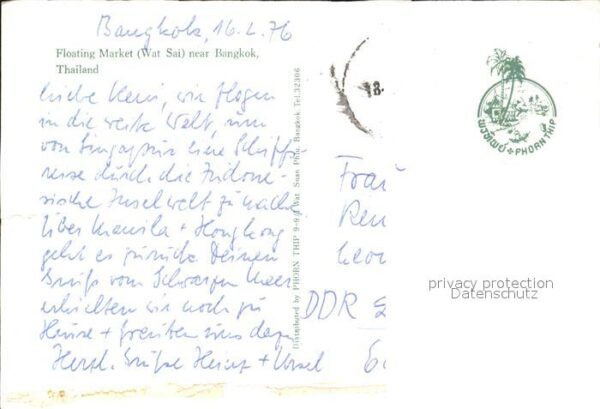 Bangkok, 16.2.76
Floating Market (Wat Sai) near Bangkok,
Thailand
Liebe Reni, wir flogen
in die weite Welt, um
von Singapur eine Schiffs
reise durch die Indone-
sische Inselwelt zu machen
Über Manila + Hongkong
geht es zurück. Deinen
Gruß vom Schwarzen Meer
erhielten wir noch zu
Hause + freuten uns
Herzl. Grüße Heinz + Ursel
Distributed by PHORN THIP 9-9/1 Wat Suan Phlu, Bangkok, Tel. 32306
18.
Frau
Ren
DDR
พรทิพย์ PHORN THIP
privacy protection
Datenschutz